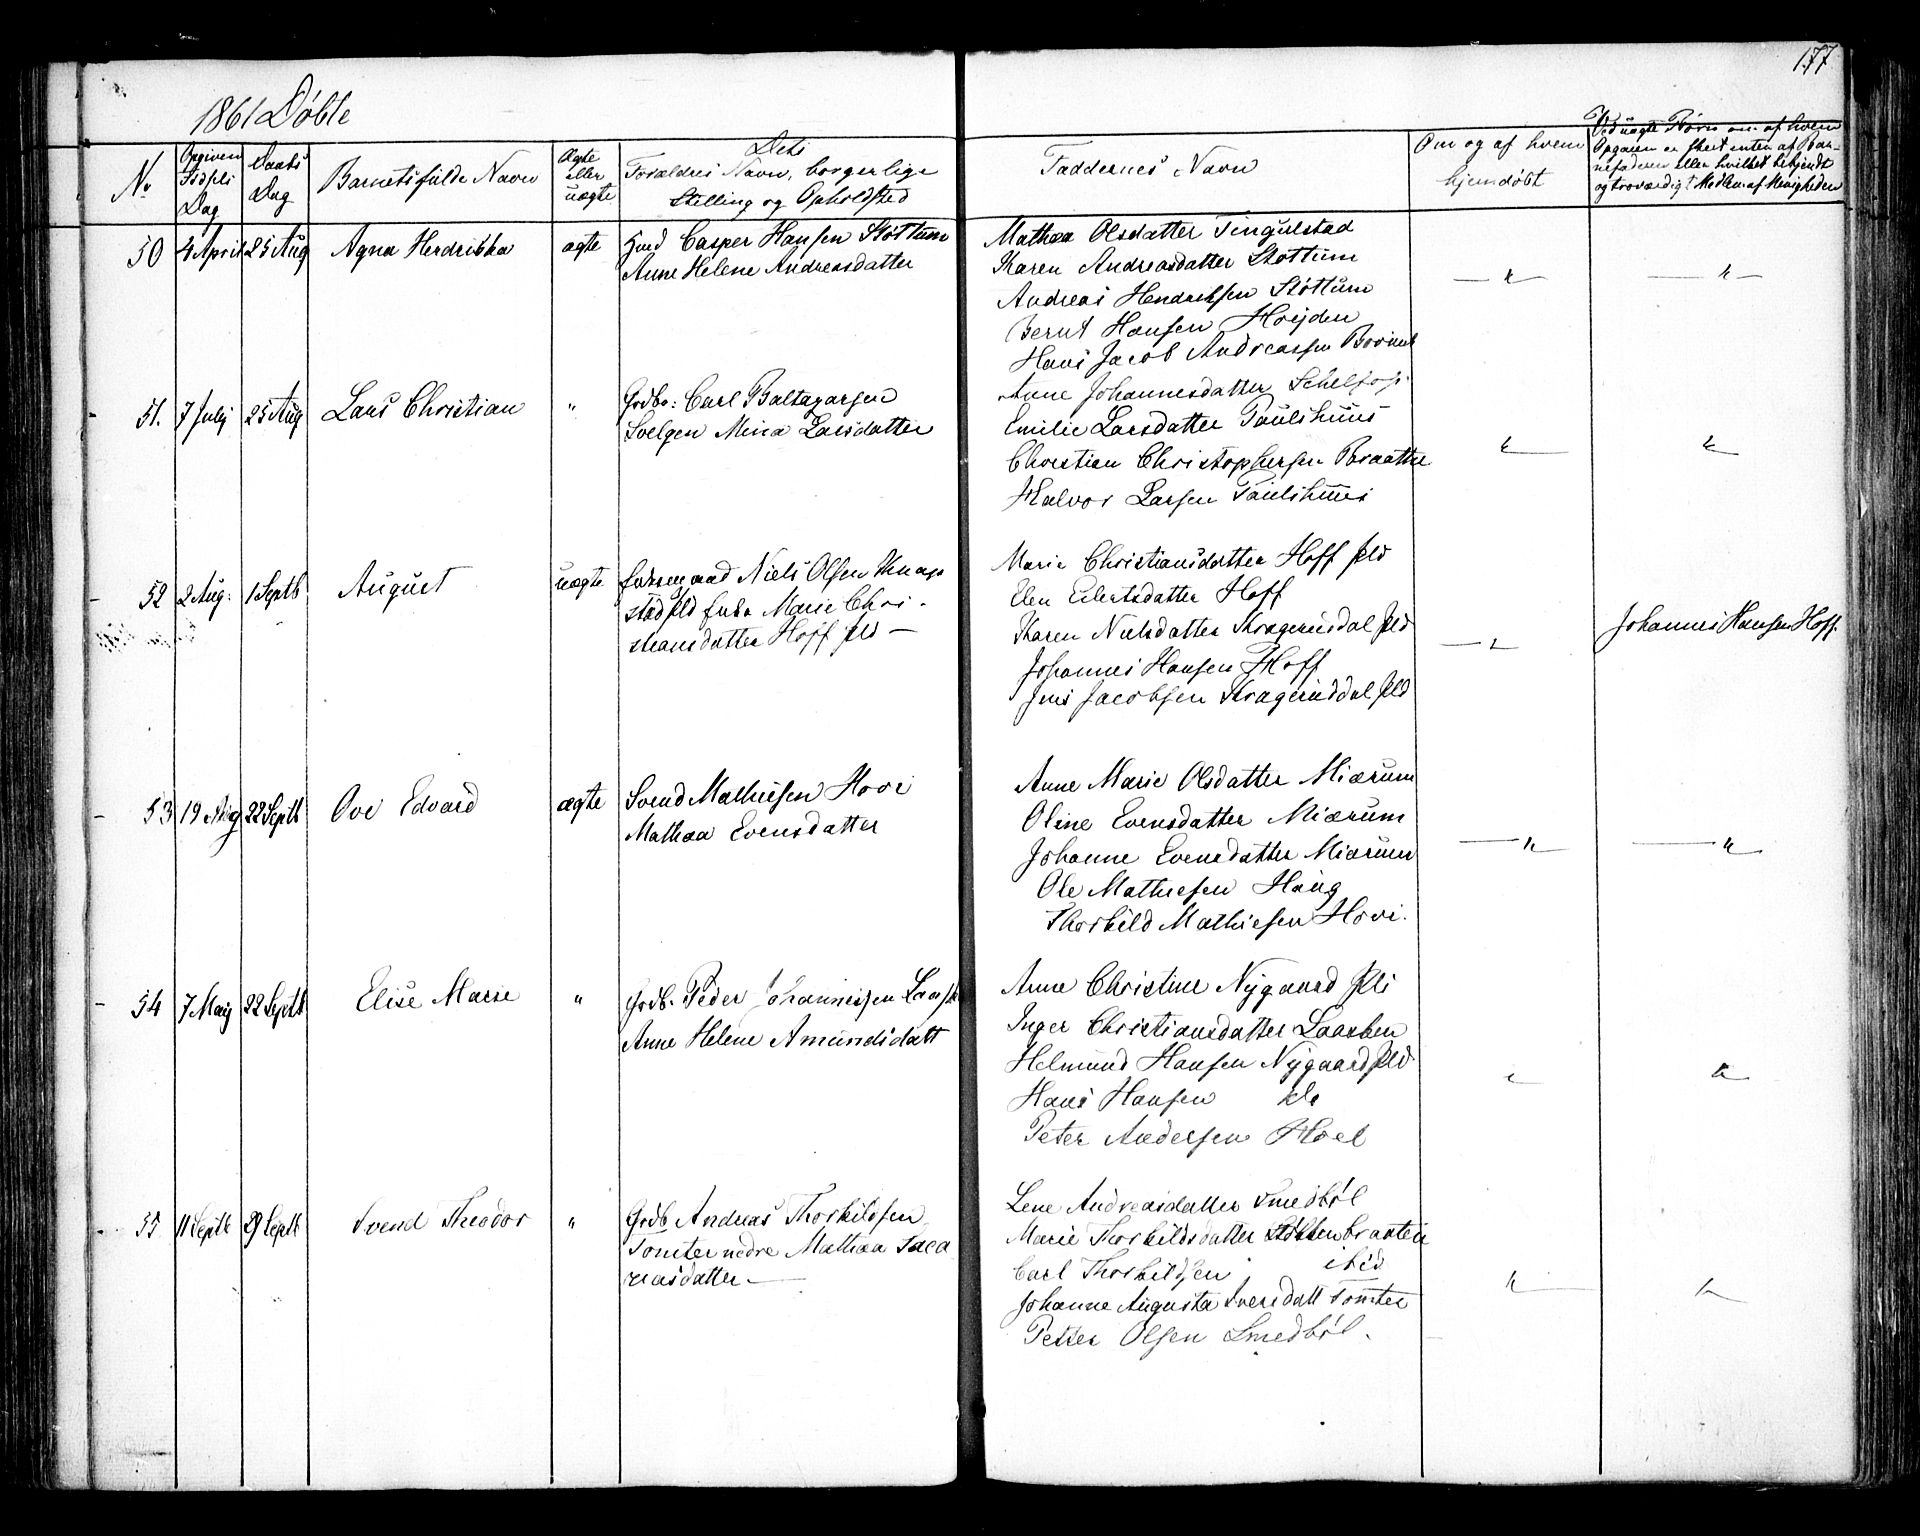 177
1861 Døbte
No
Opgiven Fødsels Dag
Daabs Dag
Barnets fulde Navn
Ægte eller uægte
Dets
Forældres Navn, borgerlige
Stilling og Opholdsted
Faddernes Navn
Om og af hvem
hjemdøbt
Ved uægte Børn om af hvem
Opgaven er skeet enten af Bar-
nefaderen eller hvilket bekjendt
og troværdigt Medlem af Menigheden
50 4 April 25 Aug Agna Hendrikka ægte Casper Hansen Støttum
Anne Helene Andreasdatter
Mathea Olsdatter Tingulstad
Karen Andreasdatter Støttum
Andreas Hendrichsen Støttum
Bernt Hansen Høijden
Hans Jacob Andreassen
51. 7 Julj 25 Aug Lars Christian " Grdbr: Carl Baltazarsen
Svelgen Mina Larsdatter
Anne Johannesdatter
Emilie Larsdatter Paulshuus
Christian Christophersen Braathe
Halvor Larsen Paulshuus
52 2 Aug: 1 Septb August uægte Niels Olsen Knap
stad pld Marie Chri-
stiansdatter Hoff pld —
Marie Christiansdatter Hoff pld
Elen Eilertsdatter Hoff
Karen Nielsdatter Kragerusdal pld
Johannes Hansen Hoff
Jens Jacobsen Kragerusdal pld
Johannes Hansen Hoff.
53 19 Aug 22 Septb Ove Edvard ægte Svend Mathiesen Hovi
Mathea Evensdatter
Anne Marie Olsdatter Miærum
Oline Evensdatter Miærum
Johanne Evensdatter Miærum
Ole Mathiesen Haug
Thorkild Mathiesen Hovi.
54 7 Maij 22 Septb Elise Marie " Grdb. Peder Johannessen
Anne Helene Amundsdatt
Anne Christine Nygaard
Inger Christiansdatter Laasken
Helmund Hansen Nygaard pld
Hans Hansen
Peter Andersen Hoel
55 11 Septb 29 Septb Svend Theodor " Grdb Andreas Thorkildsen
Tomter nedre Mathea Saca
riasdatter —
Lene Andreasdatter Smedbøl
Marie Thorkildsdatter
Carl Thorkildsen ibid
Johanne Augusta Iversdatt Tomter
Petter Olsen Smedbøl.